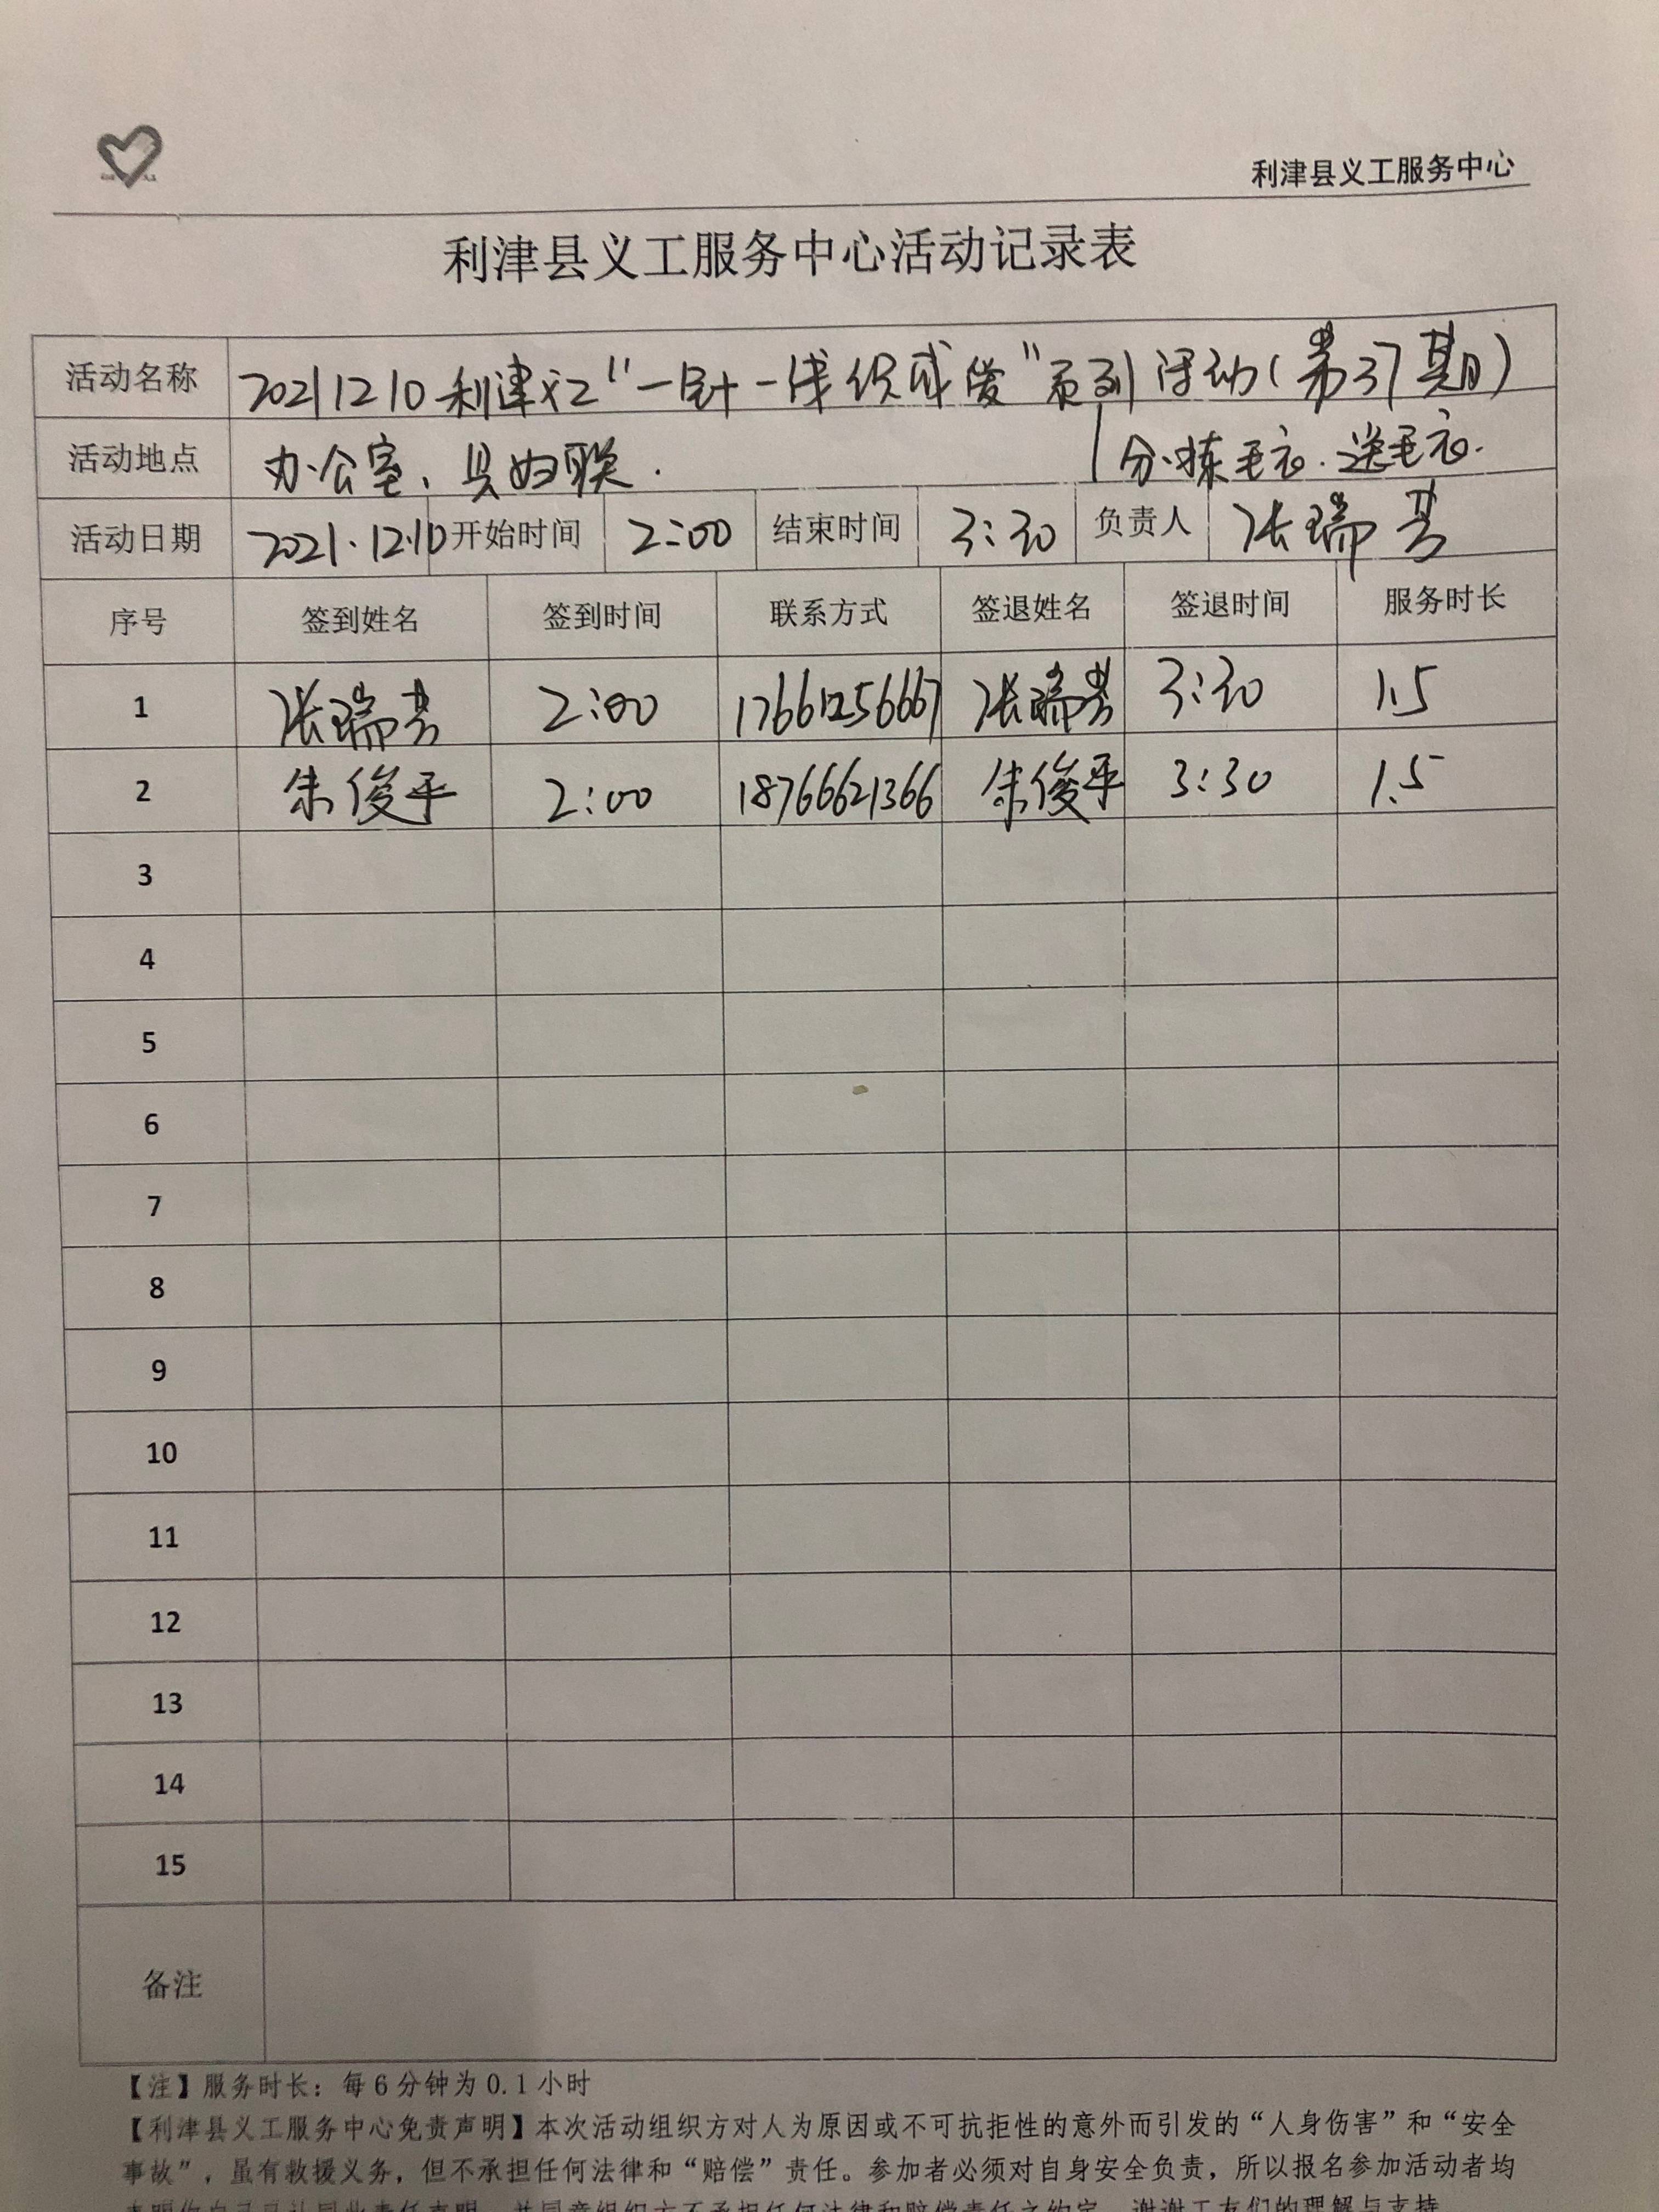 利津县义工服务中心
利津县义工服务中心活动记录表
活动名称 20211210利津义工"一针一线织成爱"系列活动(第37期)
活动地点 办公室、县妇联. 分拣毛衣.送毛衣.
活动日期 2021.12.10 开始时间 2:00 结束时间 3:30 负责人 张瑞芳
序号 签到姓名 签到时间 联系方式 签退姓名 签退时间 服务时长
1 张瑞芳 2:00 17661256667 张瑞芳 3:30 1.5
2 朱俊平 2:00 18766621366 朱俊平 3:30 1.5
3
4
5
6
7
8
9
10
11
12
13
14
15
备注
【注】服务时长：每6分钟为0.1小时
【利津县义工服务中心免责声明】本次活动组织方对人为原因或不可抗拒性的意外而引发的“人身伤害”和“安全
事故”，虽有救援义务，但不承担任何法律和“赔偿”责任。参加者必须对自身安全负责，所以报名参加活动者均